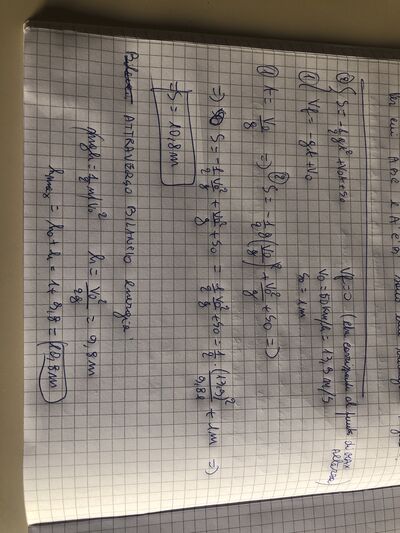 ② { S = -½gt² + v₀t + s₀ Vf = 0 (che corrisponde al punto di max altezza)
① { Vf = -gt + v₀ v₀ = 50 km/h = 13,9 m/s
s₀ = 1m
① t = v₀/g => ② S = -½ g (v₀/g)² + v₀²/g + s₀ =>
=> S = -½ v₀²/g + v₀²/g + s₀ = ½ v₀²/g + s₀ = ½ · (13,9)²/9,81 + 1m =>
=> S = 10,8m
ATTRAVERSO BILANCIO energia:
mgh = ½ mv₀² h = v₀²/2g = 9,8m
hmax = h₀ + h = 1 + 9,8 = 10,8m